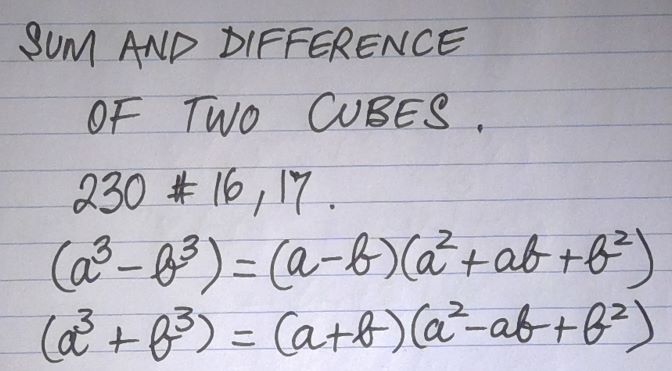 SUM AND DIFFERENCE
OF TWO CUBES.
230 # 16, 17.
(a³ - b³) = (a-b)(a² + ab + b²)
(a³ + b³) = (a+b)(a² - ab + b²)